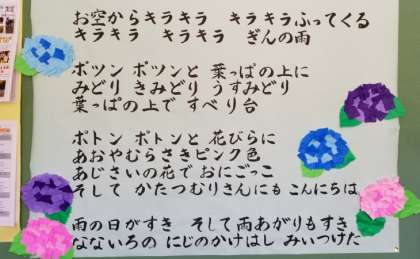 お空からキラキラ　キラキラふってくる
キラキラ　キラキラ　ぎんの雨
ポツン ポツンと 葉っぱの上に
みどり きみどり うすみどり
葉っぱの上で すべり台
ポトン ポトンと 花びらに
あおやむらさきピンク色
あじさいの花で おにごっこ
そして かたつむりさんにも こんにちは
雨の日がすき　そして雨あがりもすき
なないろの にじのかけはし みいつけた